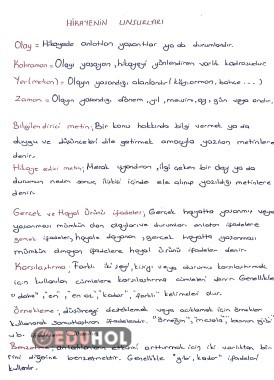 HİKAYENİN UNSURLARI
Olay = Hikayede anlatılan yaşantılar ya da durumlardır.
Kahraman = Olayı yaşayan, hikayeyi yönlendiren varlık kadrosudur.
Yer (mekan) = Olayın yaşandığı alanlardır (köy, orman, bahçe ...)
Zaman = Olayın yaşandığı dönem, yıl, mevsim, ay, gün veya andır.
Bilgilendirici metin; Bir konu hakkında bilgi vermek ya da
duygu ve düşünceleri dile getirmek amacıyla yazılan metinlere
denir.
Hikaye edici metin; Merak uyandıran, ilgi çeken bir olay ya da
durumun neden sonuç ilişkisi içinde ele alınıp yazıldığı metinlere
denir.
Gerçek ve Hayal Ürünü ifadeler; Gerçek hayatta yaşanmış veya
yaşanması mümkün olan olayları ve durumları anlatan ifadelere
gerçek ifadeler, hayale dayanan, gerçek hayatta yaşanması
mümkün olmayan ifadelere hayal ürünü ifadeler denir.
Karşılaştırma; Farklı iki şeyi, kişiyi veya durumu karşılaştırmak
için kullanılan cümlelere karşılaştırma cümleleri denir. Genellikle
"daha", "en", "en az", "kadar", "farklı" kelimeleri olur.
Örnekleme; düşünceyi desteklemek veya açıklamak için örnekler
kullanarak somutlaştıran ifadelerdir. "Örneğin", "mesela", bunun gibi"
vb.
Benzetme; anlatımın etkisini arttırmak için iki varlıktan, birini
diğerine benzetmektir. Genellikle "gibi, kadar" ifadeleri
kullanılır.
EĞİTHOL